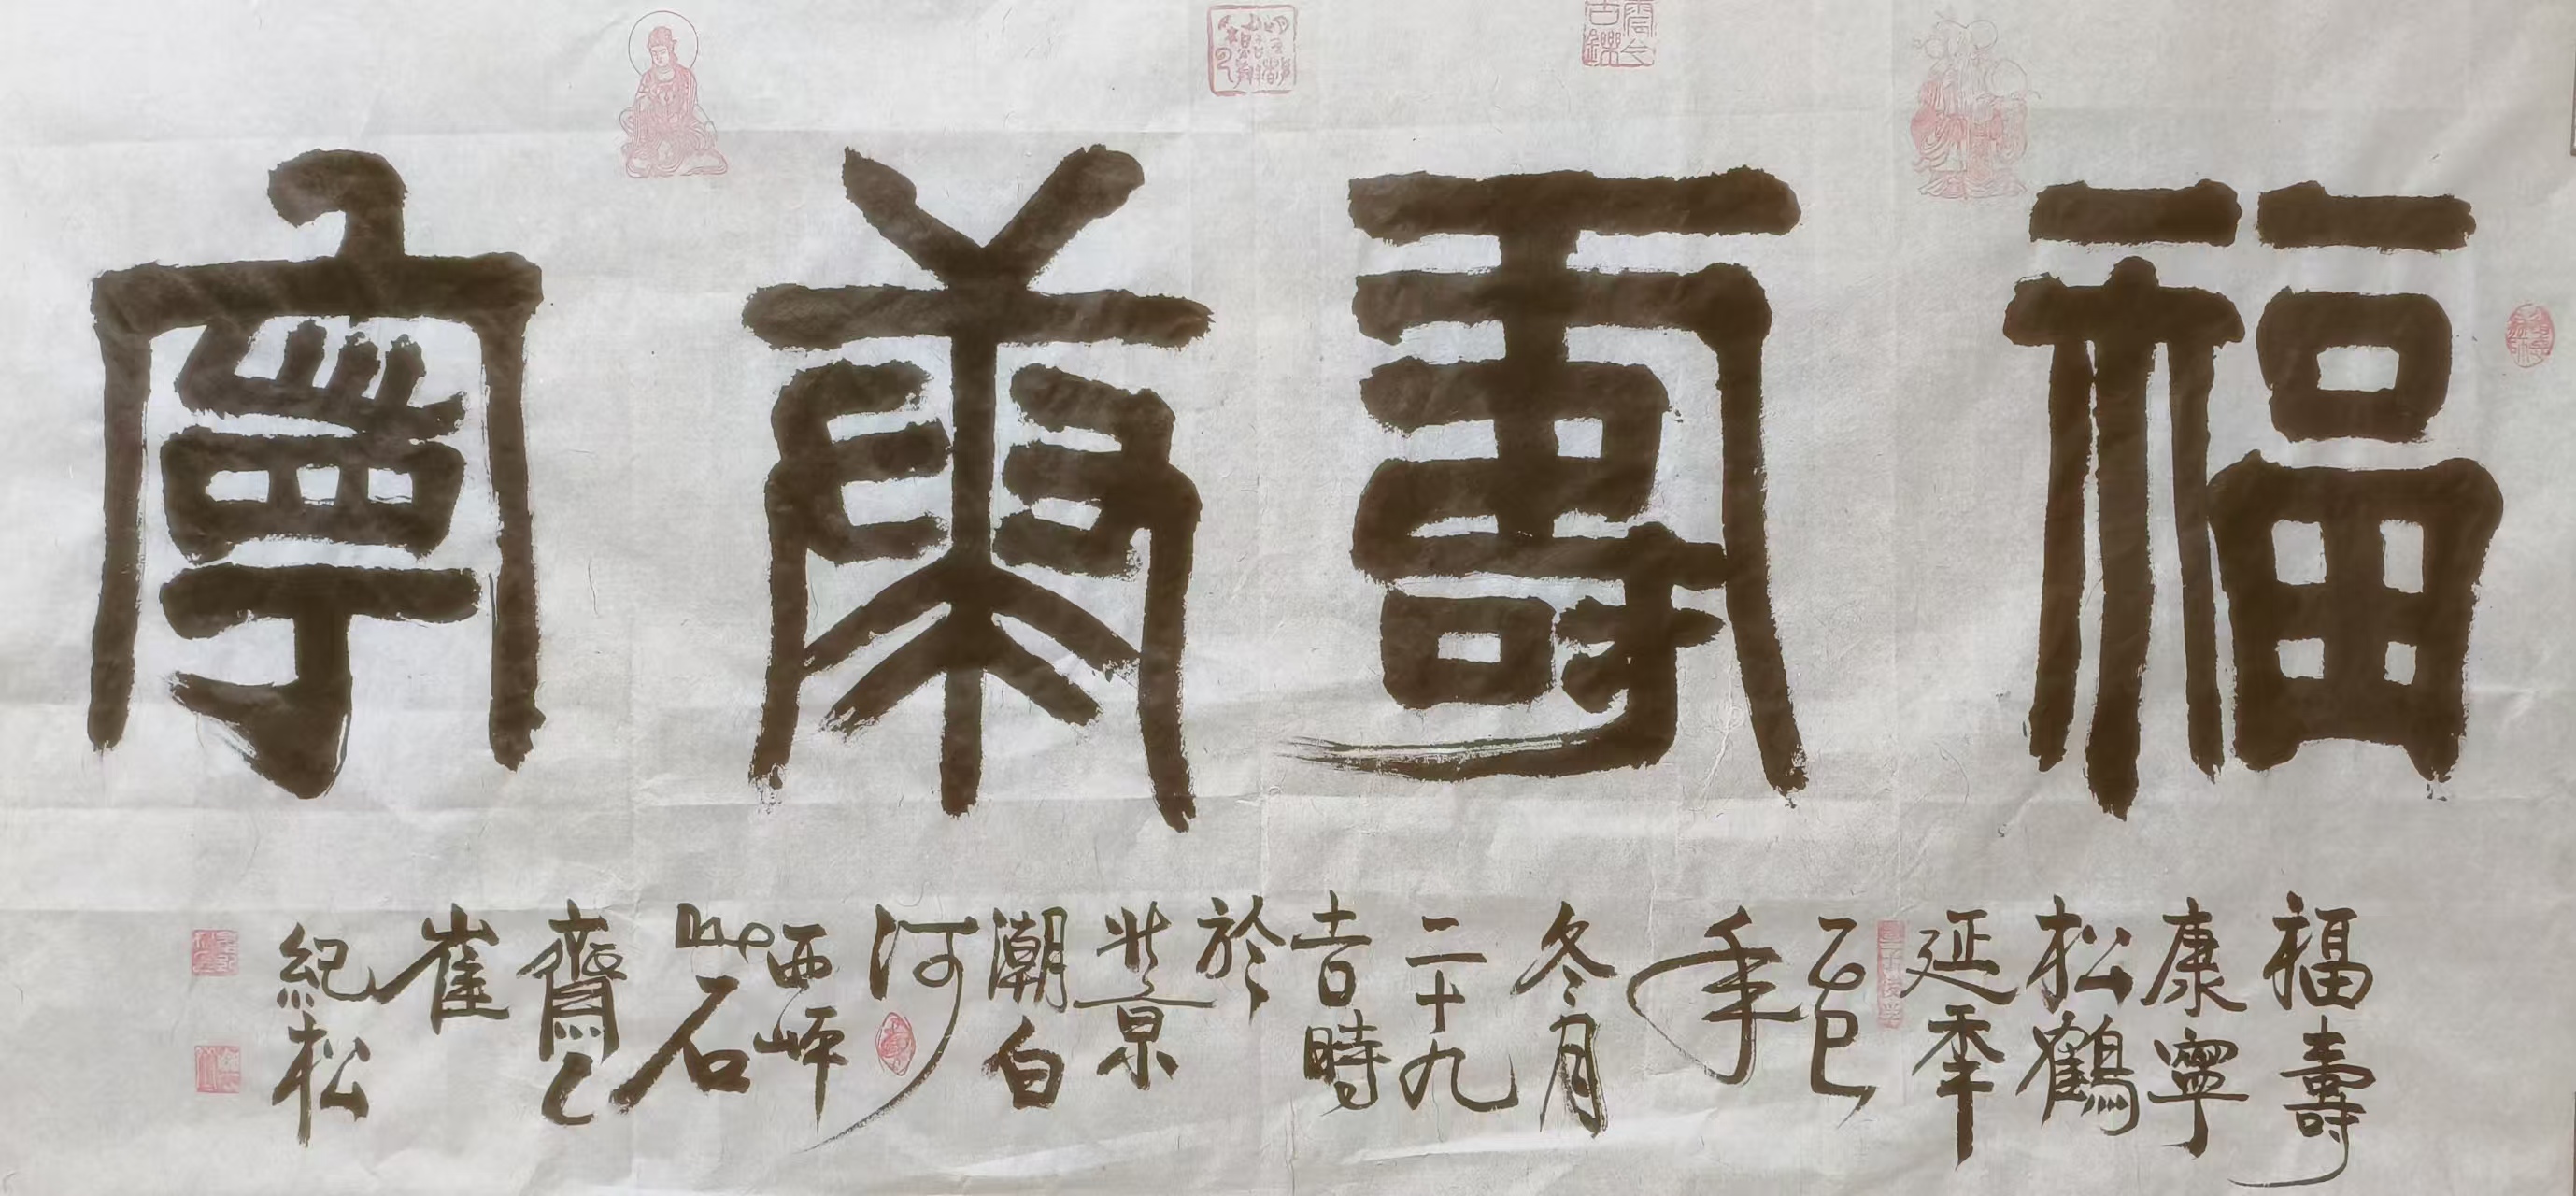 福壽康寧
福壽
康寧
松鶴
延季
乙巳
年
冬月
二十九
吉時
於
北京
潮白
河
西岸
石
齋
崔
紀松